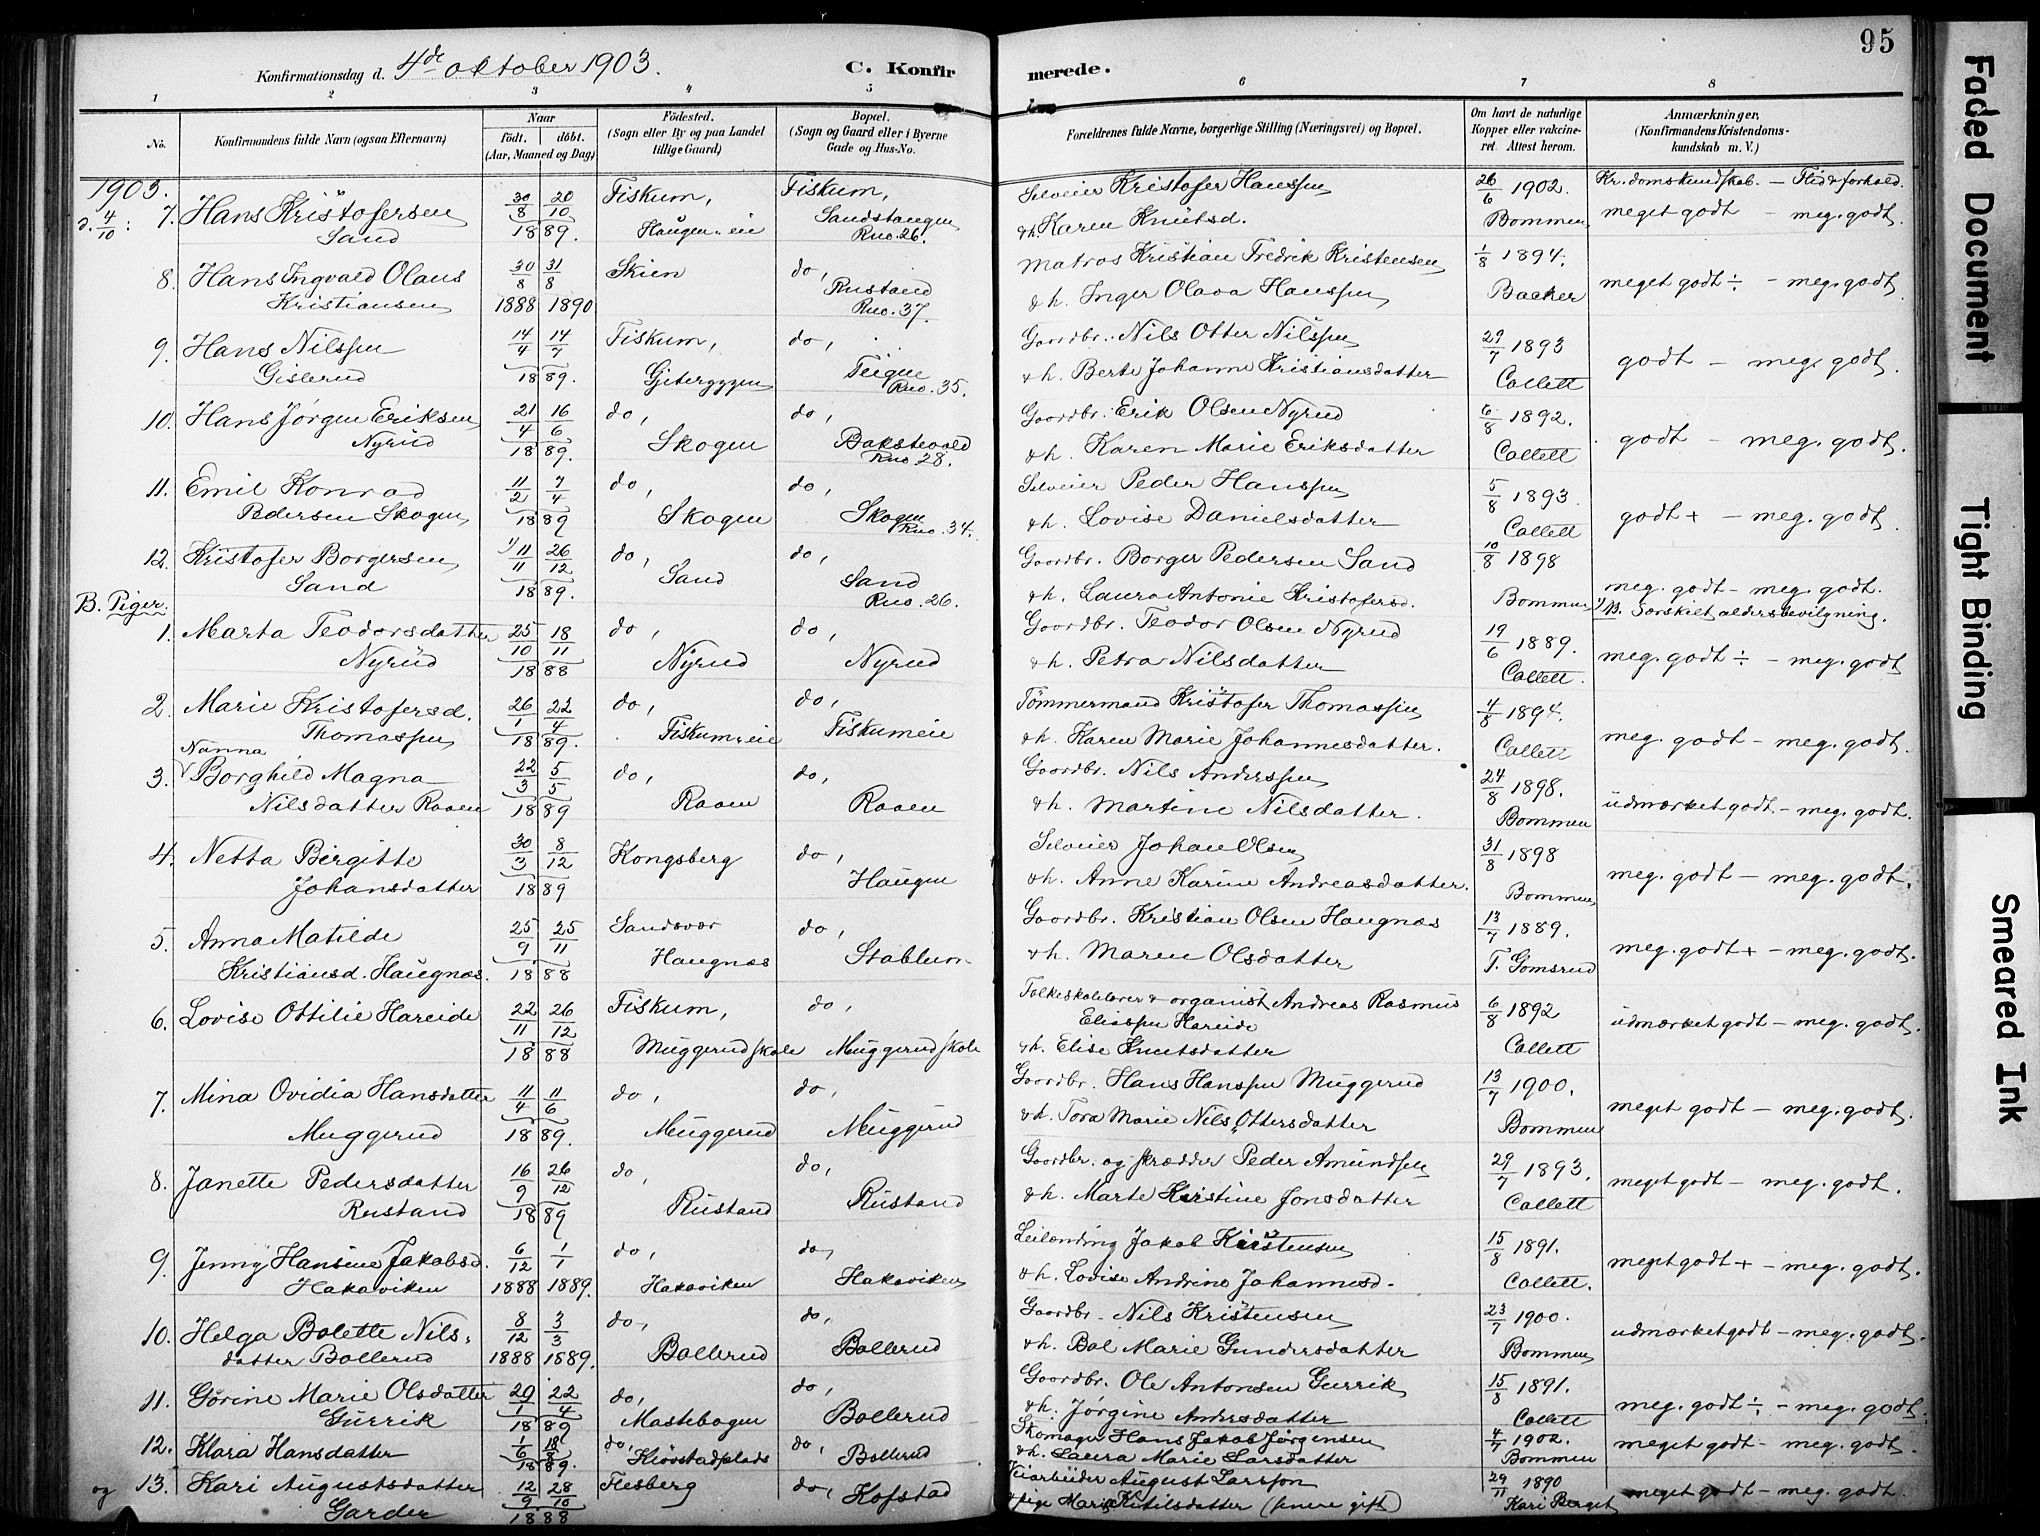 95
Konfirmationsdag d. 4de oktober 1903. C. Konfirmerede.
1 2 3 4 5 6 7 8
No. Konfirmandens fulde Navn (ogsaa Efternavn) Naar født. døbt. (Aar, Maaned og Dag) Fødested. (Sogn eller By og paa Landet tillige Gaard) Bopæl. (Sogn og Gaard eller i Byerne Gade og Hus-No. Forældrenes fulde Navne, borgerlige Stilling (Næringsvei) og Bopæl. Om havt de naturlige Kopper eller vakcineret. Attest herom. Anmærkninger, (Konfirmandens Kristendomskundskab m. V.)
1903. d. 4/10:
7. Hans Kristofersen 30/8 20/10 Fiskum, Fiskum, Selveier Kristofer Hanssen 26/6 1902. Kr.domskundskab. – Flid & forhold.
Sand 1889. Haugen-eie Sandstangen Rno. 26. & h. Karen Knutsd. Bommen meget godt – meg. godt.
8. Hans Ingvald Olaus 30/8 31/8 Skien do, Matros Kristian Fredrik Kristensen 1/8 1894.
Kristiansen 1888 1890 Rustand Rno. 37. & h. Inger Olava Hanssen Backer meget godt ÷ – meg. godt.
9. Hans Nilssen 14/4 14/7 Fiskum, do, Gaardbr. Nils Otter Nilssen 29/7 1893
Gislerud 1889. Gjeteryggen Teigen Rno. 35. & h. Berte Johanne Kristiansdatter Collett godt – meg. godt.
10. Hans Jørgen Eriksen 21/4 16/6 do, do, Gaardbr. Erik Olsen Nyrud 6/8 1892.
Nyrud 1889. Skogen Bakstevold Rno 28. & h. Karen Marie Eriksdatter Collett godt – meg. godt.
11. Emil Konrad 11/2 7/4 do, do, Selveier Peder Hanssen 5/8 1893.
Pedersen Skogen 1889 Skogen Skogen Rno. 34. & h. Lovise Danielsdatter Collett godt + – meg. godt.
12. Kristofer Borgersen 1) 11/11 26/12 do, do, Gaardbr. Borger Pedersen Sand 10/8 1898
Sand 1889. Sand Sand Rno. 26. & h. Laura Antonie Kristofersd. Bommen meg. godt – meg. godt.
1) NB. Særskilt aldersbevilgning.
B. Piger.
1. Marta Teodorsdatter 25/10 18/11 do, do, Gaardbr. Teodor Olsen Nyrud 19/6 1889.
Nyrud 1888 Nyrud Nyrud & h. Petra Nilsdatter Collett. meg. godt ÷ – meg. godt
2. Marie Kristofersd. 26/1 22/4 do, do, Tømmermand Kristofer Thomassen 4/8 1894.
Thomassen 1889. Fiskum-eie Fiskumeie & h. Karen Marie Johannesdatter. Collett meg. godt – meg. godt.
Nanna
3. Borghild Magna 22/3 5/5 do, do, Gaardbr. Nils Anderssen 24/8 1898.
Nilsdatter Raaen 1889 Raaen Raaen & h. Martine Nilsdatter. Bommen udmærket godt – meg. godt.
4. Netta Birgitte 30/3 8/12 Kongsberg do, Selveier Johan Olsen 31/8 1898
Johansdatter 1889 Haugen & h. Anne Karine Andreasdatter. Bommen meg. godt – meg. godt.
5. Anna Matilde 25/9 25/11 Sandsvær do, Gaardbr. Kristian Olsen Haugnæs 13/7 1889.
Kristiansd. Haugnæs. 1888 Haugnæs Stablum & h. Maren Olsdatter T. Gomsrud meg. godt + – meg. godt.
6. Lovise Ottilie Hareide 22/11 26/12 Fiskum, do, Folkeskolelærer & organist Andreas Rasmus 6/8 1892
Eliassen Hareide udmærket godt – meg. godt.
1888 Muggerud skole Muggerud skole & h. Elise Knutsdatter Collett
7. Mina Ovidia Hansdatter 11/4 11/6 do, do, Gaardbr. Hans Hanssen Muggerud 13/7 1900.
Muggerud 1889. Muggerud Muggerud & h. Tora Marie Nils-Ottersdatter Bommen meget godt – meg. godt.
8. Janette Pedersdatter 16/9 26/12 do, do, Gaardbr. og skrædder Peder Amundsen 29/7 1893.
Rustand 1889 Rustand Rustand & h. Marte Kirstine Jonsdatter Collett meget godt – meg. godt.
9. Jenny Hansine Jakobsd. 6/12 1/1 do, do, Leilænding Jakob Kristensen 15/8 1891.
Hakaviken 1888 1889. Hakaviken Hakaviken & h. Lovise Andrine Johannesd. Collett. meget godt + – meg. godt.
10. Helga Bolette Nils- 8/12 3/3 do, do, Gaardbr. Nils Kristensen 23/7 1900.
datter Bollerud 1888 1889. Bollerud Bollerud & h. Bol Marie Gundersdatter Bommen udmærket godt – meg. godt.
11. Gørine Marie Olsdatter 29/1 22/4 do, do, Gaardbr. Ole Antonsen Gurrik 15/8 1891.
Gurrik 1889 Mastebogen Bollerud & h. Jørgine Andersdatter Collett meg. godt ÷ – meg. godt.
12. Klara Hansdatter 1/6 18/8 do, do, Skomager Hans Jakob Jørgensen 4/7 1902.
1889. Kløvstadplads Bollerud & h. Laura Marie Larsdatter Bommen meget godt – meg. godt.
og 13. Kari Augustsdatter 12/9 28/10 Flesberg do, Kofstad Veiarbeider August Larsson 29/11 1890
Garder 1888 & pige Maria Ketilsdatter (senere gift) Kari Berget meget godt – meg. godt.
Faded Document
Tight Binding
Smeared Ink